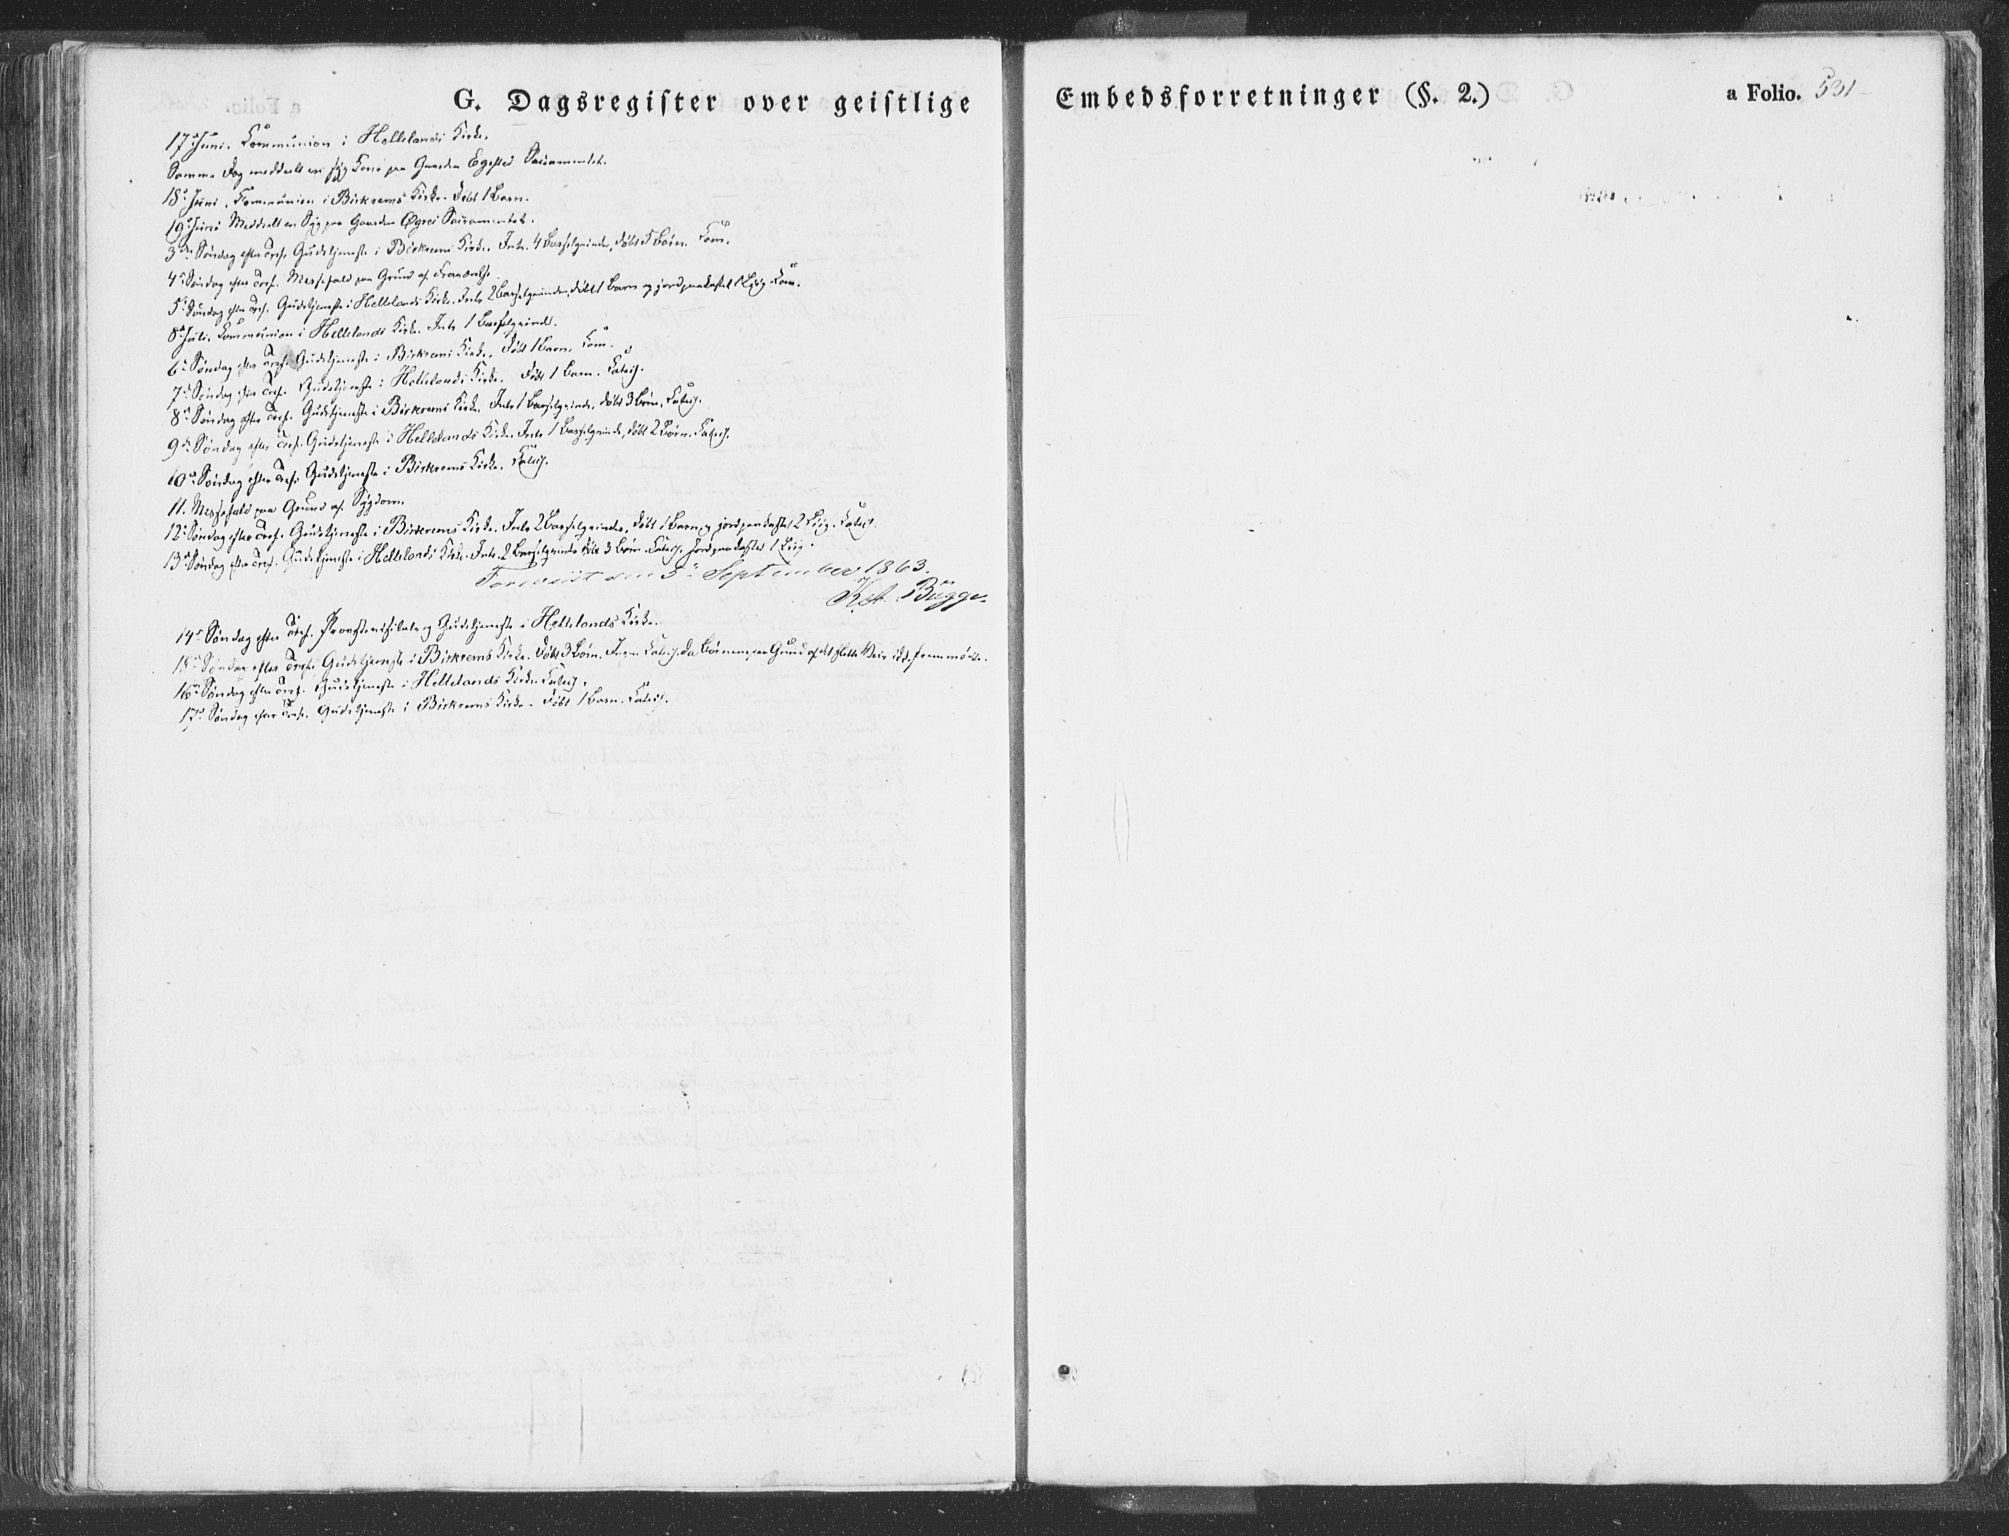 G. Dagsregister over geistlige Embedsforretninger (§. 2.) a Folio. 531
17d Juni. Communion i Hellelands Kirke.
Samme Dag meddelt en syg Kone paa Gaarden Egested Sacramentet.
18d Juni. Kommunion i Birkrems Kirke. Døbt 1 Barn.
19d Juni Meddelt en Syg paa Gaarden Øgrei Sacramentet.
3die Søndag efter Tref. Gudstjeneste i Birkrems Kirke. Intr. 4 Barselqvinder, døbt 5 Børn. Com.
4d Søndag efter Tref. Messefald paa Grund af
5d Søndag efter Tref. Gudstjeneste i Hellelands Kirke. Intr. 2 Barselqvinder, døbt 1 Barn og jordpaakastet 1 Liig. Com.
8d Juli. Communion i Hellelands Kirke. Intr. 1 Barselqvinde.
6d Søndag efter Tref. Gudstjeneste i Birkrems Kirke. Døbt 1 Barn. Com.
7d Søndag efter Tref. Gudstjeneste i Hellelands Kirke. Døbt 1 Barn. Catech.
8d Søndag efter Tref. Gudstjeneste i Birkrems Kirke. Intr. 1 Barselqvinde, døbt 3 Børn, Catech.
9d Søndag efter Tref. Gudstjeneste i Hellelands Kirke. Intr. 1 Barselqvinde, døbt 2 Børn. Catech.
10d Søndag efter Tref. Gudstjeneste i Birkrems Kirke. Catech.
11. Messefald paa Grund af Sygdom.
12d Søndag efter Tref. Gudstjeneste i Birkrems Kirke. Intr. 2 Barselqvinder, døbt 1 Barn, og jordpaakastet 2 Liig. Catech.
13d Søndag efter Tref. Gudstjeneste i Hellelands Kirke. Intr. 2 Barselqvinder døbt 3 Børn. Catech. Jordpaakastet 1 Liig.
Foreviist den 5te September 1863.
Bugge.
14d Søndag efter Tref. Provstevisitats og Gudstjeneste i Hellelands Kirke.
15d Søndag efter Tref. Gudstjeneste i Birkrems Kirke. Døbt 3 Børn. Ingen Catech. da Børnene paa Grund af det slette Veir ikke fremmødte.
16d Søndag efter Tref. Gudstjeneste i Hellelands Kirke. Catech.
17d Søndag efter Tref. Gudstjeneste i Birkrems Kirke. Døbt 1 Barn. Catech.